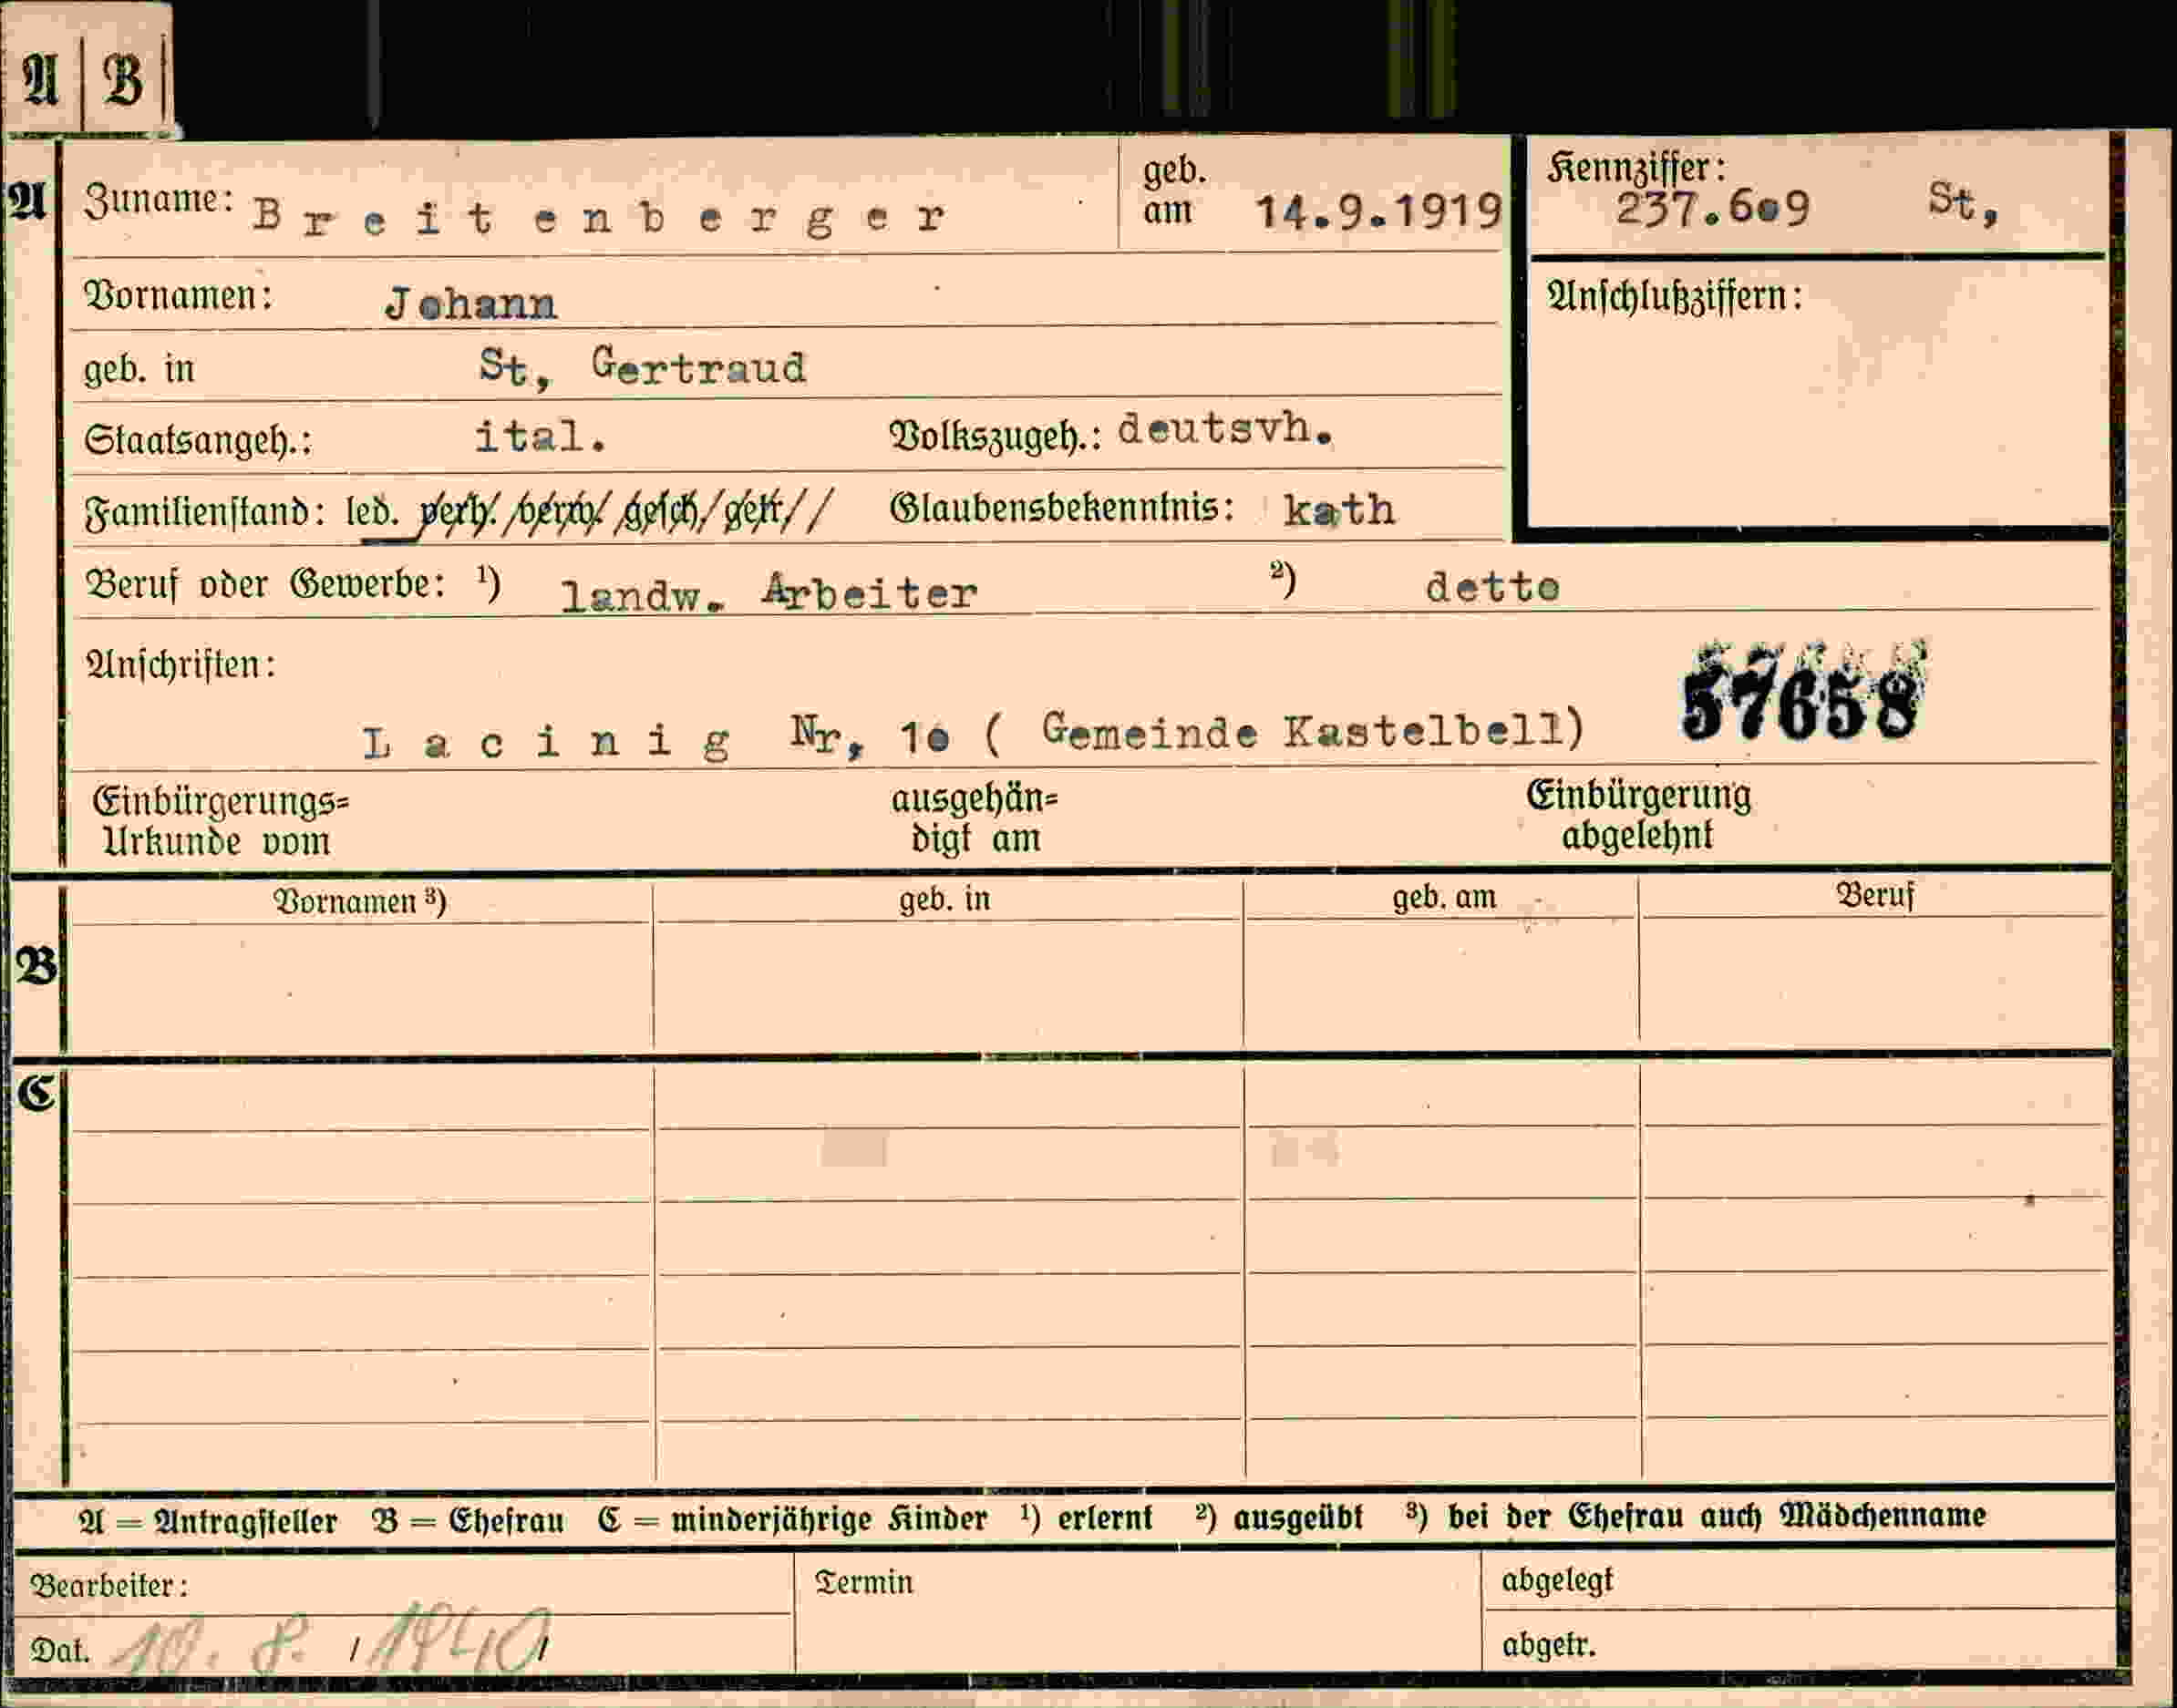 A | B
A Zuname: Breitenberger geb. am 14.9.1919 Kennziffer: 237.609 St,
Vornamen: Johann Anschlußziffern:
geb. in St, Gertraud
Staatsangeh.: ital. Volkszugeh.: deutsvh.
Familienstand: led. verh./verw./gesch./getr// Glaubensbekenntnis: kath
Beruf oder Gewerbe: ¹) landw. Arbeiter ²) detto
Anschriften: 57658
Lacinig Nr, 10 ( Gemeinde Kastelbell)
Einbürgerungs= ausgehän= Einbürgerung
Urkunde vom digt am abgelehnt
Vornamen ³) geb. in geb. am Beruf
B
C
A = Antragsteller B = Ehefrau C = minderjährige Kinder ¹) erlernt ²) ausgeübt ³) bei der Ehefrau auch Mädchenname
Bearbeiter: Termin abgelegt
Dat. 10. 8. / 1940 / abgetr.